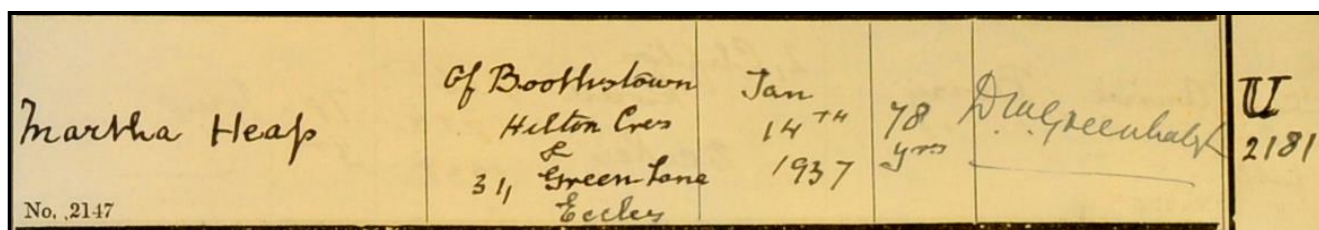 Martha Heap
No. 2147
Of Boothstown
Hilton Cres
&
31, Green Lane
Eccles
Jan
14TH
1937
78
yrs
D.W. Greenhalgh
U
2181